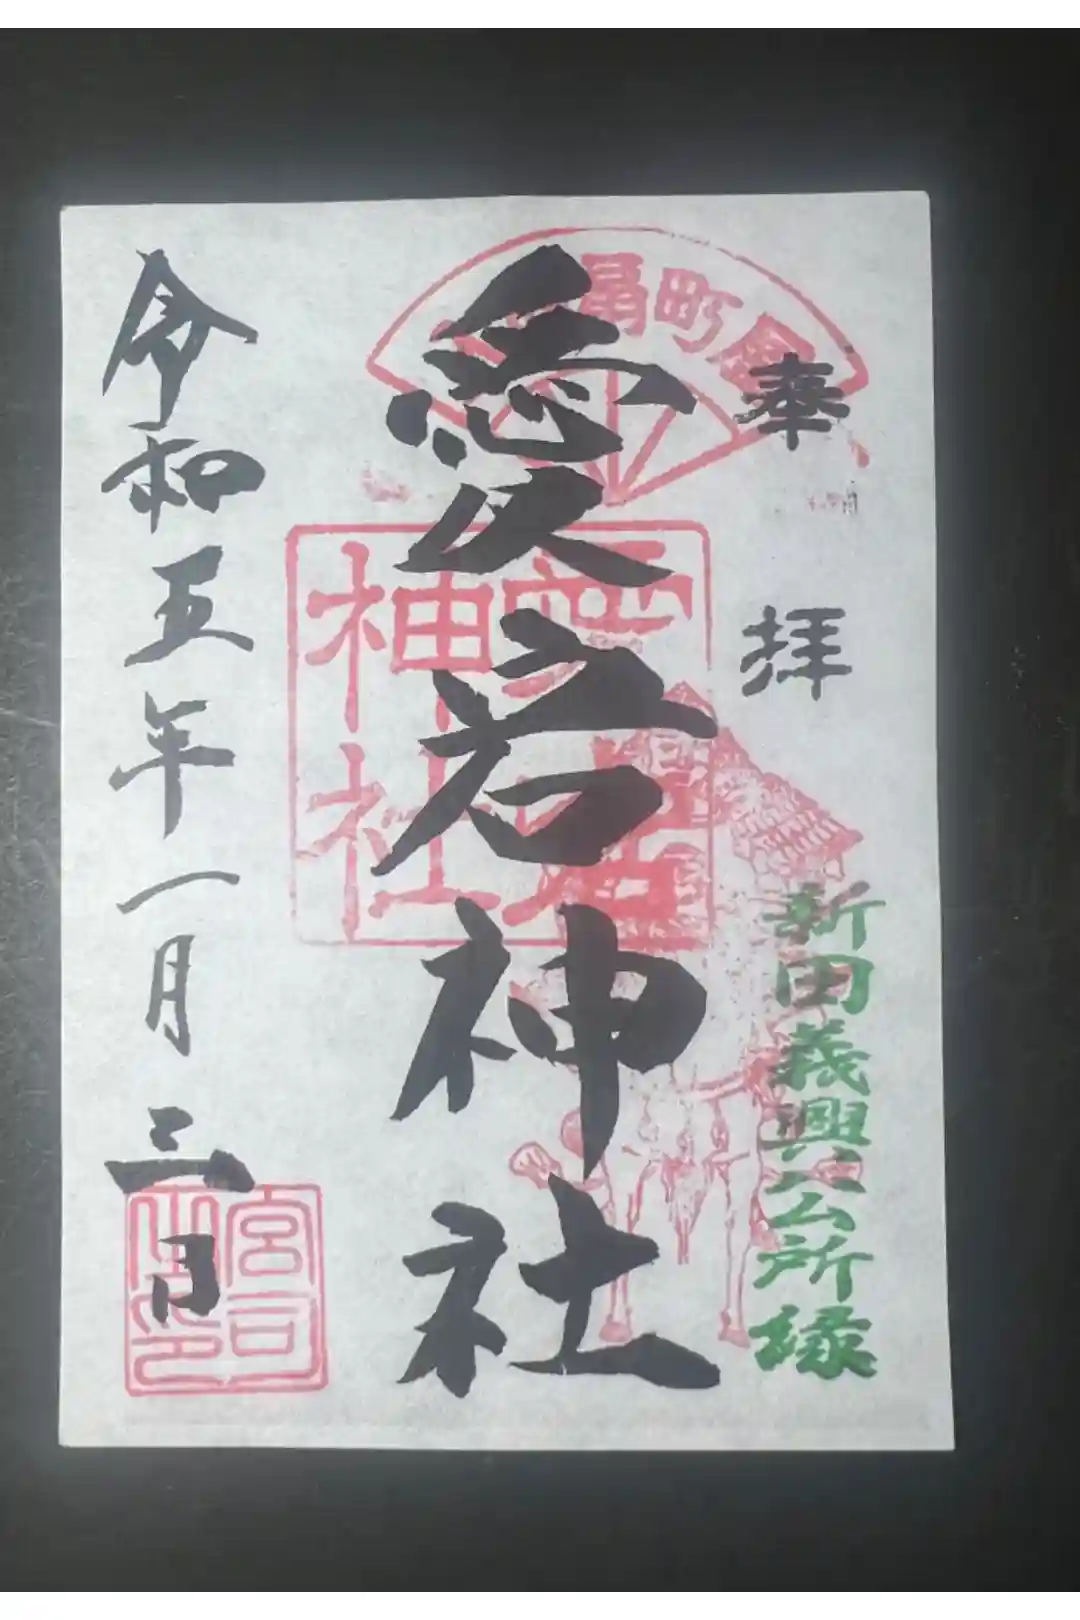 奉拝
新田義興公所縁
町
愛宕神社
神社
令和五年一月三日
宮司之印